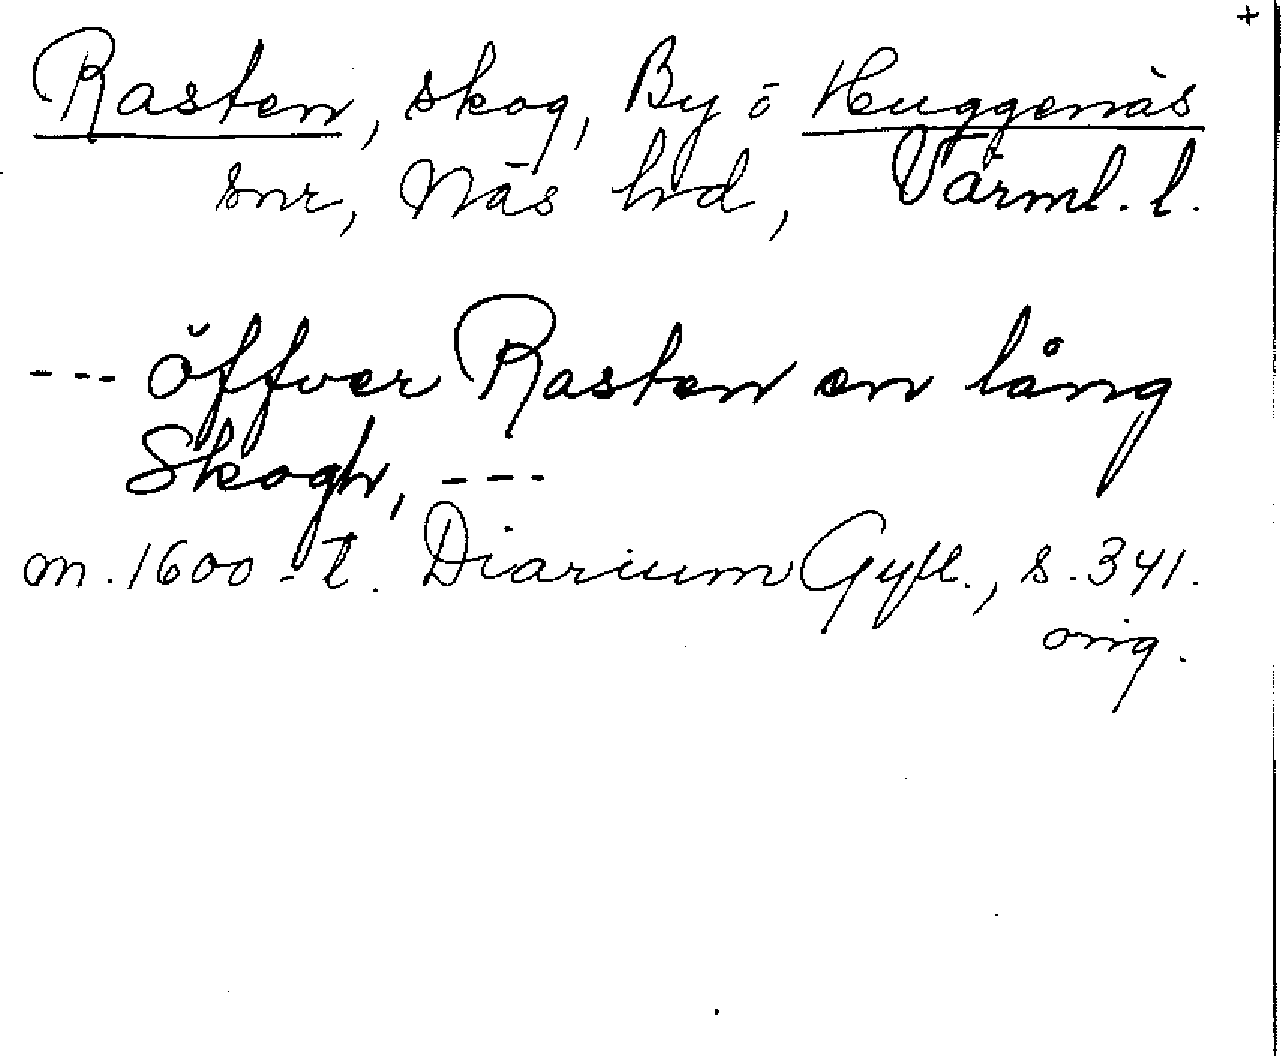 +
Rasten, skog, By o Huggenäs
snr, Näs hd, Värml. l.
--- öffver Rasten en lång
Skogh, ---
m. 1600-t. Diarium Gyll., s. 341.
orig.